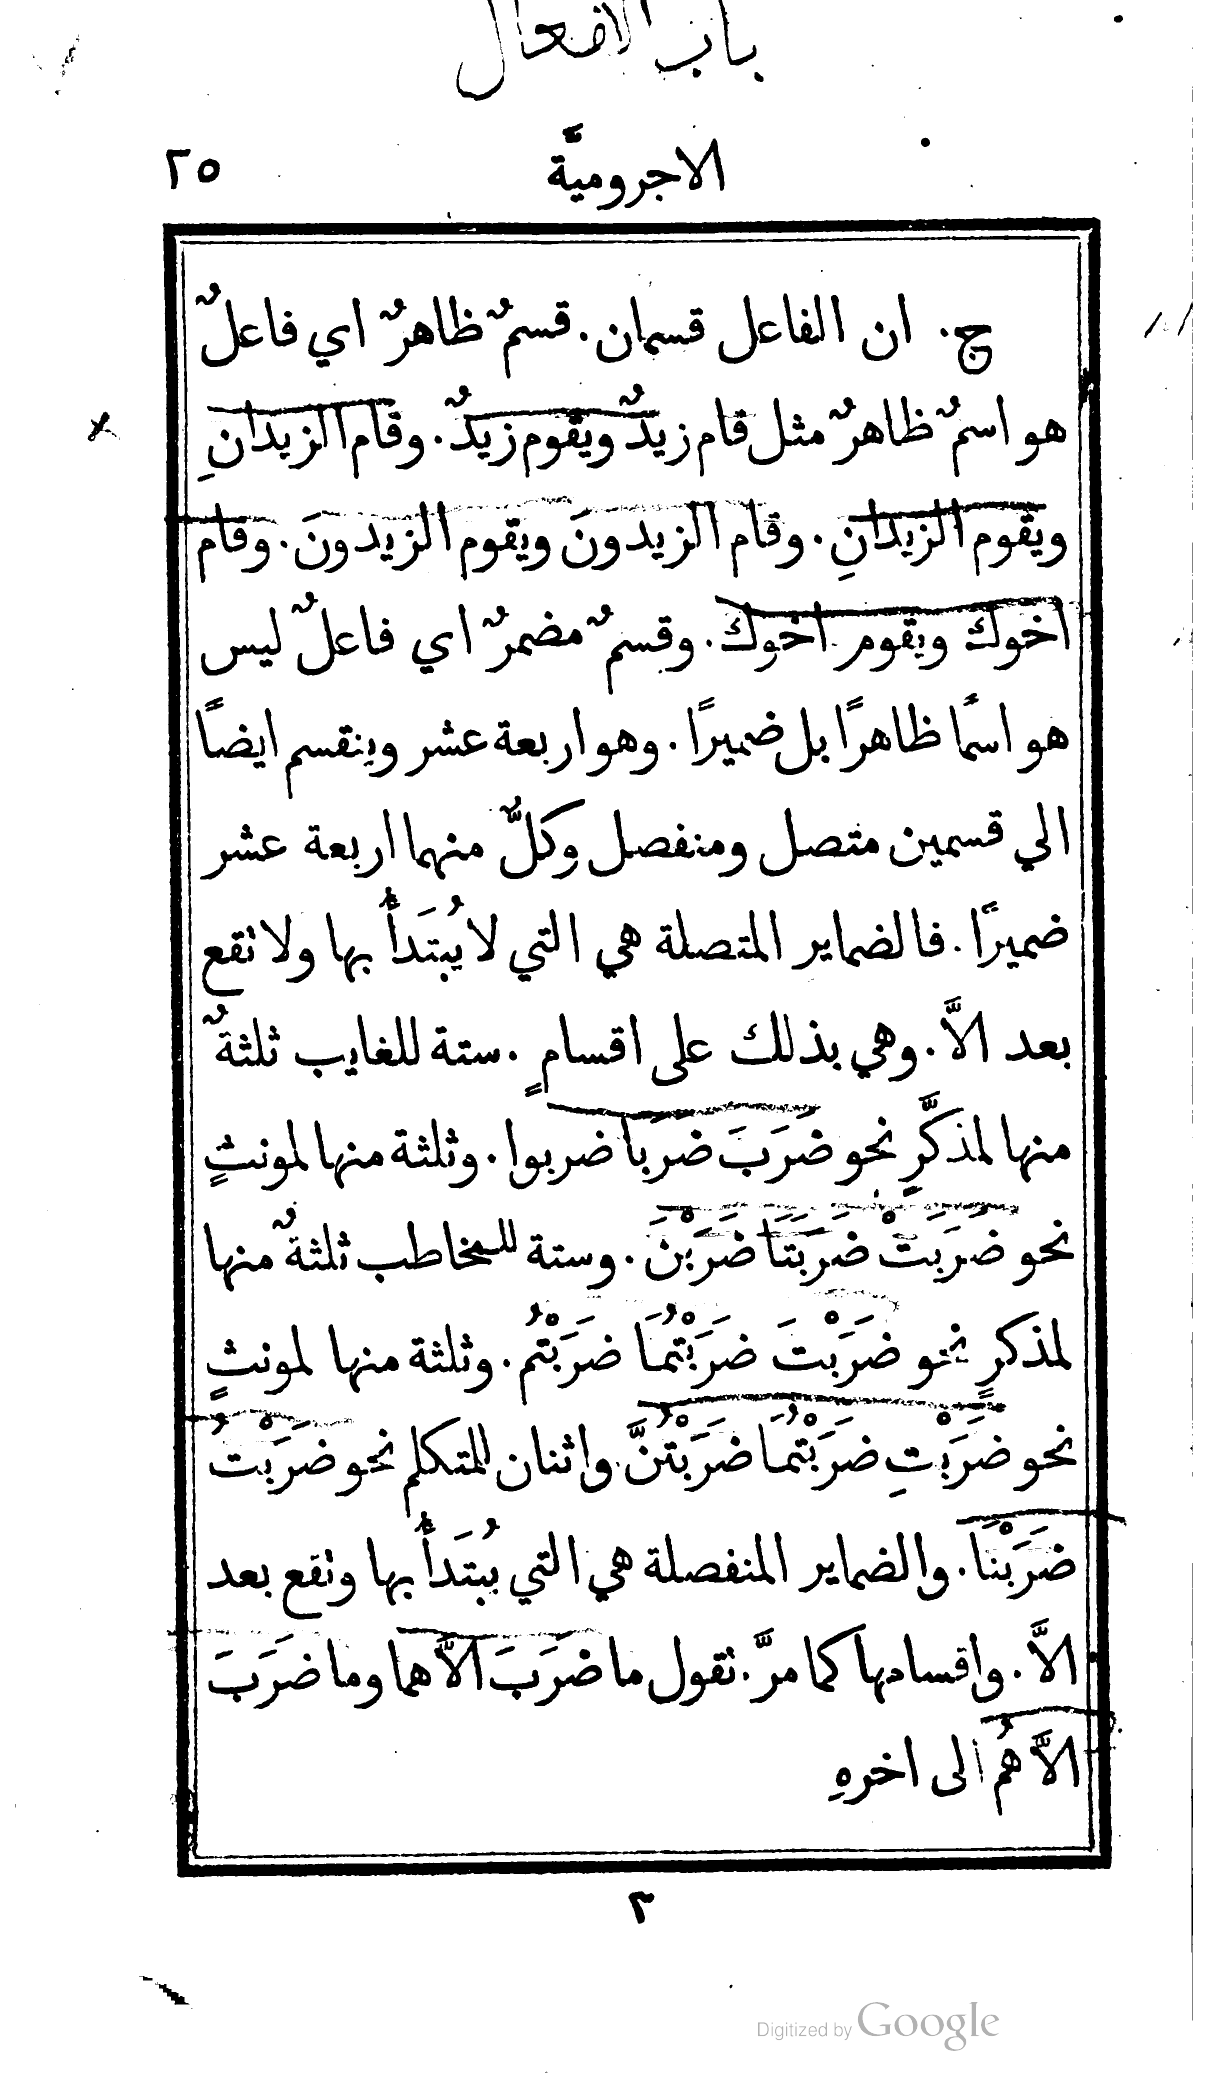 باب الافعال
الاجروميَّة ٢٥
ج. ان الفاعل قسمان. قسمٌ ظاهرٌ اي فاعلٌ
هو اسمٌ ظاهرٌ مثل قام زيدٌ ويقوم زيدٌ. وقام الزيدانِ
ويقوم الزيدانِ. وقام الزيدونَ ويقوم الزيدونَ. وقام
اخوك ويقوم اخوك. وقسمٌ مضمرٌ اي فاعلٌ ليس
هو اسمًا ظاهرًا بل ضميرًا. وهو اربعة عشر وينقسم ايضًا
الي قسمين متصل ومنفصل وكلٌّ منهما اربعة عشر
ضميرًا. فالضماير المتصلة هي التي لا يُبتَدأُ بها ولا تقع
بعد الاَّ. وهي بذلك على اقسامٍ. ستة للغايب ثلثةٌ
منها لمذكَّرٍ نحو ضَرَبَ ضَرَبا ضربوا. وثلثة منها لمونثٍ
نحو ضَرَبَتْ ضَرَبَتَا ضَرَبْنَ. وستة للمخاطب ثلثةٌ منها
لمذكرٍ نحو ضَرَبْتَ ضَرَبْتُمَا ضَرَبْتُم. وثلثة منها لمونثٍ
نحو ضَرَبْتِ ضَرَبْتُمَا ضَرَبْتُنَّ. واثنان للمتكلم نحو ضَرَبْتُ
ضَرَبْنَا. والضماير المنفصلة هي التي يُبتَدأُ بها وتقع بعد
الاَّ. واقسامها كما مرَّ. تقول ما ضَرَبَ الاَّ هما وما ضَرَبَ
الاَّ هُم الى اخرهِ
٣
Digitized by Google